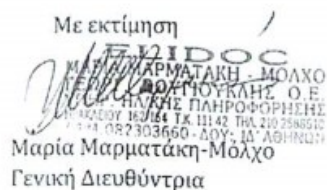 Με εκτίμηση
ELIDOC
ΜΑΡΜΑΤΑΚΗ - ΜΟΛΧΟ
Ο.Ε.
ΠΛΗΡΟΦΟΡΗΣΗΣ
162/164 Τ.Κ. 111 42 ΤΗΛ. 210
082303660 - ΔΟΥ: ΙΔ' ΑΘΗΝΩΝ
Μαρία Μαρματάκη-Μόλχο
Γενική Διευθύντρια